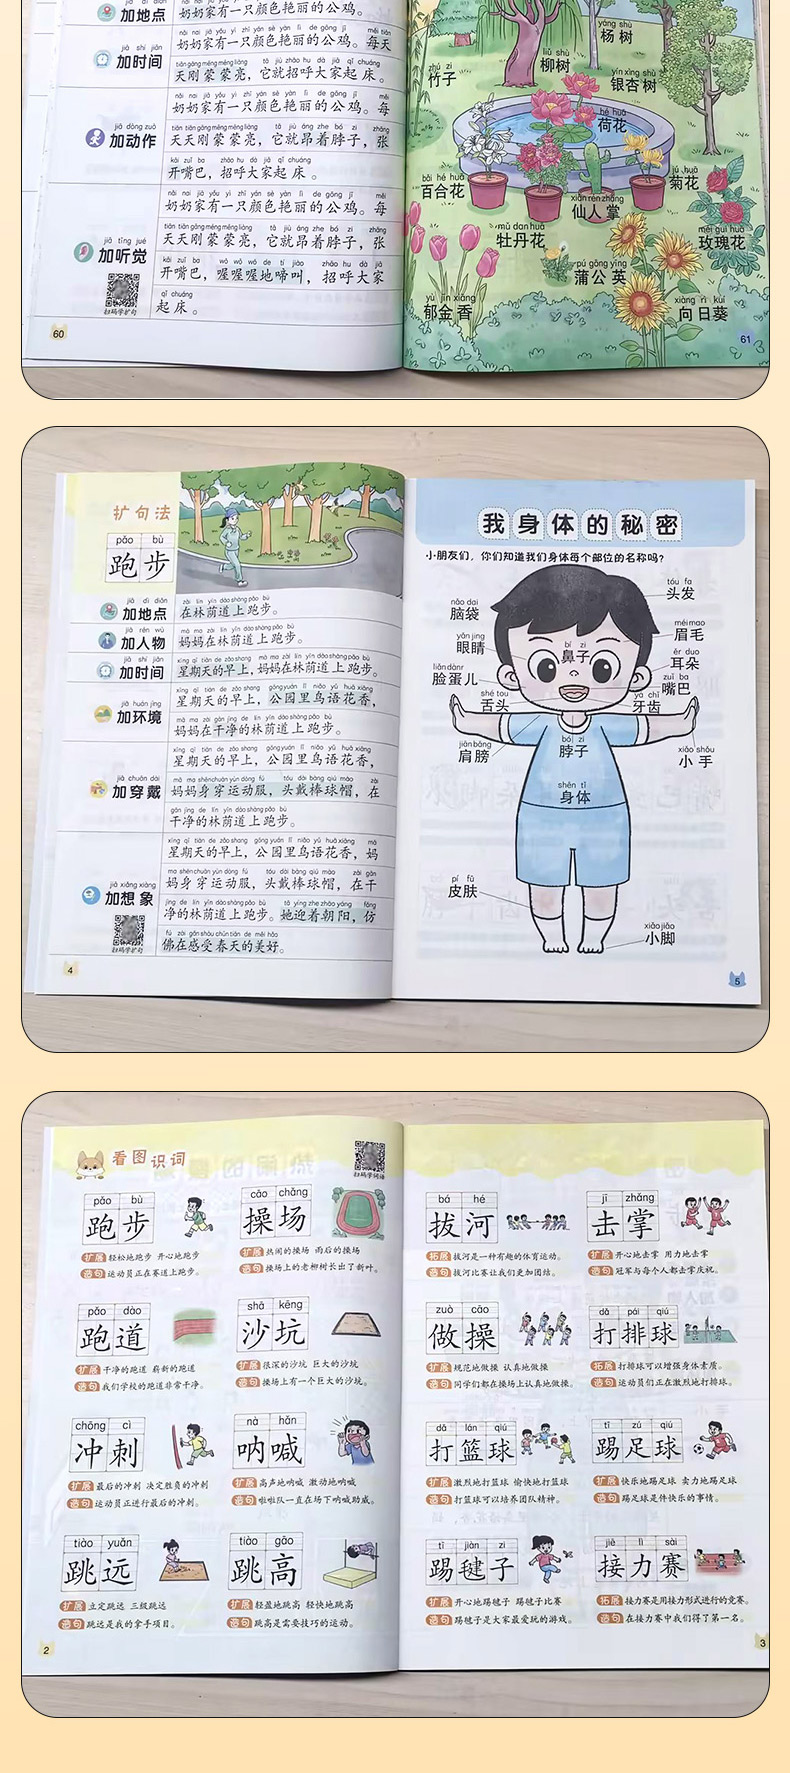 jiā dì diǎn
加地点
奶奶家有一只颜色艳丽的公鸡。
jiā shí jiān
加时间
nǎi nai jiā yǒu yì zhī yán sè yàn lì de gōng jī
奶奶家有一只颜色艳丽的公鸡。每天
天刚蒙蒙亮，它就招呼大家起床。
jiā dòng zuò
加动作
nǎi nai jiā yǒu yì zhī yán sè yàn lì de gōng jī
奶奶家有一只颜色艳丽的公鸡。每
天天刚蒙蒙亮，它就昂着脖子，张
开嘴巴，招呼大家起床。
jiā tīng jué
加听觉
奶奶家有一只颜色艳丽的公鸡。每
天天刚蒙蒙亮，它就昂着脖子，张
开嘴巴，喔喔喔地啼叫，招呼大家
qǐ chuáng
起床。
扫码学扩句
60
yáng shù
杨树
liǔ shù
柳树
zhú zi
竹子
yín xìng shù
银杏树
hé huā
荷花
bǎi hé huā
百合花
jú huā
菊花
xiān rén zhǎng
仙人掌
mǔ dan huā
牡丹花
méi gui huā
玫瑰花
pú gōng yīng
蒲公英
yù jīn xiāng
郁金香
xiàng rì kuí
向日葵
61
扩句法
pǎo bù
跑步
jiā dì diǎn
加地点
zài lín yīn dào shàng pǎo bù
在林荫道上跑步。
jiā rén wù
加人物
mā ma zài lín yīn dào shàng pǎo bù
妈妈在林荫道上跑步。
jiā shí jiān
加时间
星期天的早上，妈妈在林荫道上跑步。
jiā huán jìng
加环境
星期天的早上，公园里鸟语花香，
妈妈在干净的林荫道上跑步。
jiā chuān dài
加穿戴
星期天的早上，公园里鸟语花香，
妈妈身穿运动服，头戴棒球帽，在
干净的林荫道上跑步。
jiā xiǎng xiàng
加想象
星期天的早上，公园里鸟语花香，妈
妈身穿运动服，头戴棒球帽，在干
净的林荫道上跑步。她迎着朝阳，仿
佛在感受春天的美好。
扫码学扩句
4
我身体的秘密
小朋友们，你们知道我们身体每个部位的名称吗？
tóu fa
头发
nǎo dai
脑袋
méi mao
眉毛
yǎn jing
眼睛
bí zi
鼻子
ěr duo
耳朵
liǎn dànr
脸蛋儿
zuǐ ba
嘴巴
shé tou
舌头
yá chǐ
牙齿
jiān bǎng
肩膀
bó zi
脖子
xiǎo shǒu
小手
shēn tǐ
身体
pí fū
皮肤
xiǎo jiǎo
小脚
5
看图识词
扫码学词语
pǎo bù
跑步
扩展 轻松地跑步 开心地跑步
造句 运动员正在赛道上跑步。
cāo chǎng
操场
扩展 热闹的操场 雨后的操场
造句 操场上的老柳树长出了新叶。
pǎo dào
跑道
扩展 干净的跑道 崭新的跑道
造句 我们学校的跑道非常干净。
shā kēng
沙坑
扩展 很深的沙坑 巨大的沙坑
造句 操场上有一个巨大的沙坑。
chōng cì
冲刺
扩展 最后的冲刺 决定胜负的冲刺
造句 运动员正进行最后的冲刺。
nà hǎn
呐喊
扩展 高声地呐喊 激动地呐喊
造句 啦啦队一直在场下呐喊助威。
tiào yuǎn
跳远
扩展 立定跳远 三级跳远
造句 跳远是我的拿手项目。
tiào gāo
跳高
扩展 轻盈地跳高 轻快地跳高
造句 跳高是需要技巧的运动。
2
bá hé
拔河
拓展 拔河是一种有趣的体育运动。
造句 拔河比赛让我们更加团结。
jī zhǎng
击掌
扩展 开心地击掌 用力地击掌
造句 冠军与每个人都击掌庆祝。
zuò cāo
做操
扩展 规范地做操 认真地做操
造句 同学们都在操场上认真地做操。
dǎ pái qiú
打排球
拓展 打排球可以增强身体素质。
造句 运动员们正在激烈地打排球。
dǎ lán qiú
打篮球
扩展 激烈地打篮球 愉快地打篮球
造句 打篮球可以培养团队精神。
tī zú qiú
踢足球
扩展 快乐地踢足球 卖力地踢足球
造句 踢足球是件快乐的事情。
tī jiàn zi
踢毽子
扩展 开心地踢毽子 踢毽子比赛
造句 踢毽子是大家最爱玩的游戏。
jiē lì sài
接力赛
拓展 接力赛是用接力形式进行的竞赛。
造句 在接力赛中我们得了第一名。
3